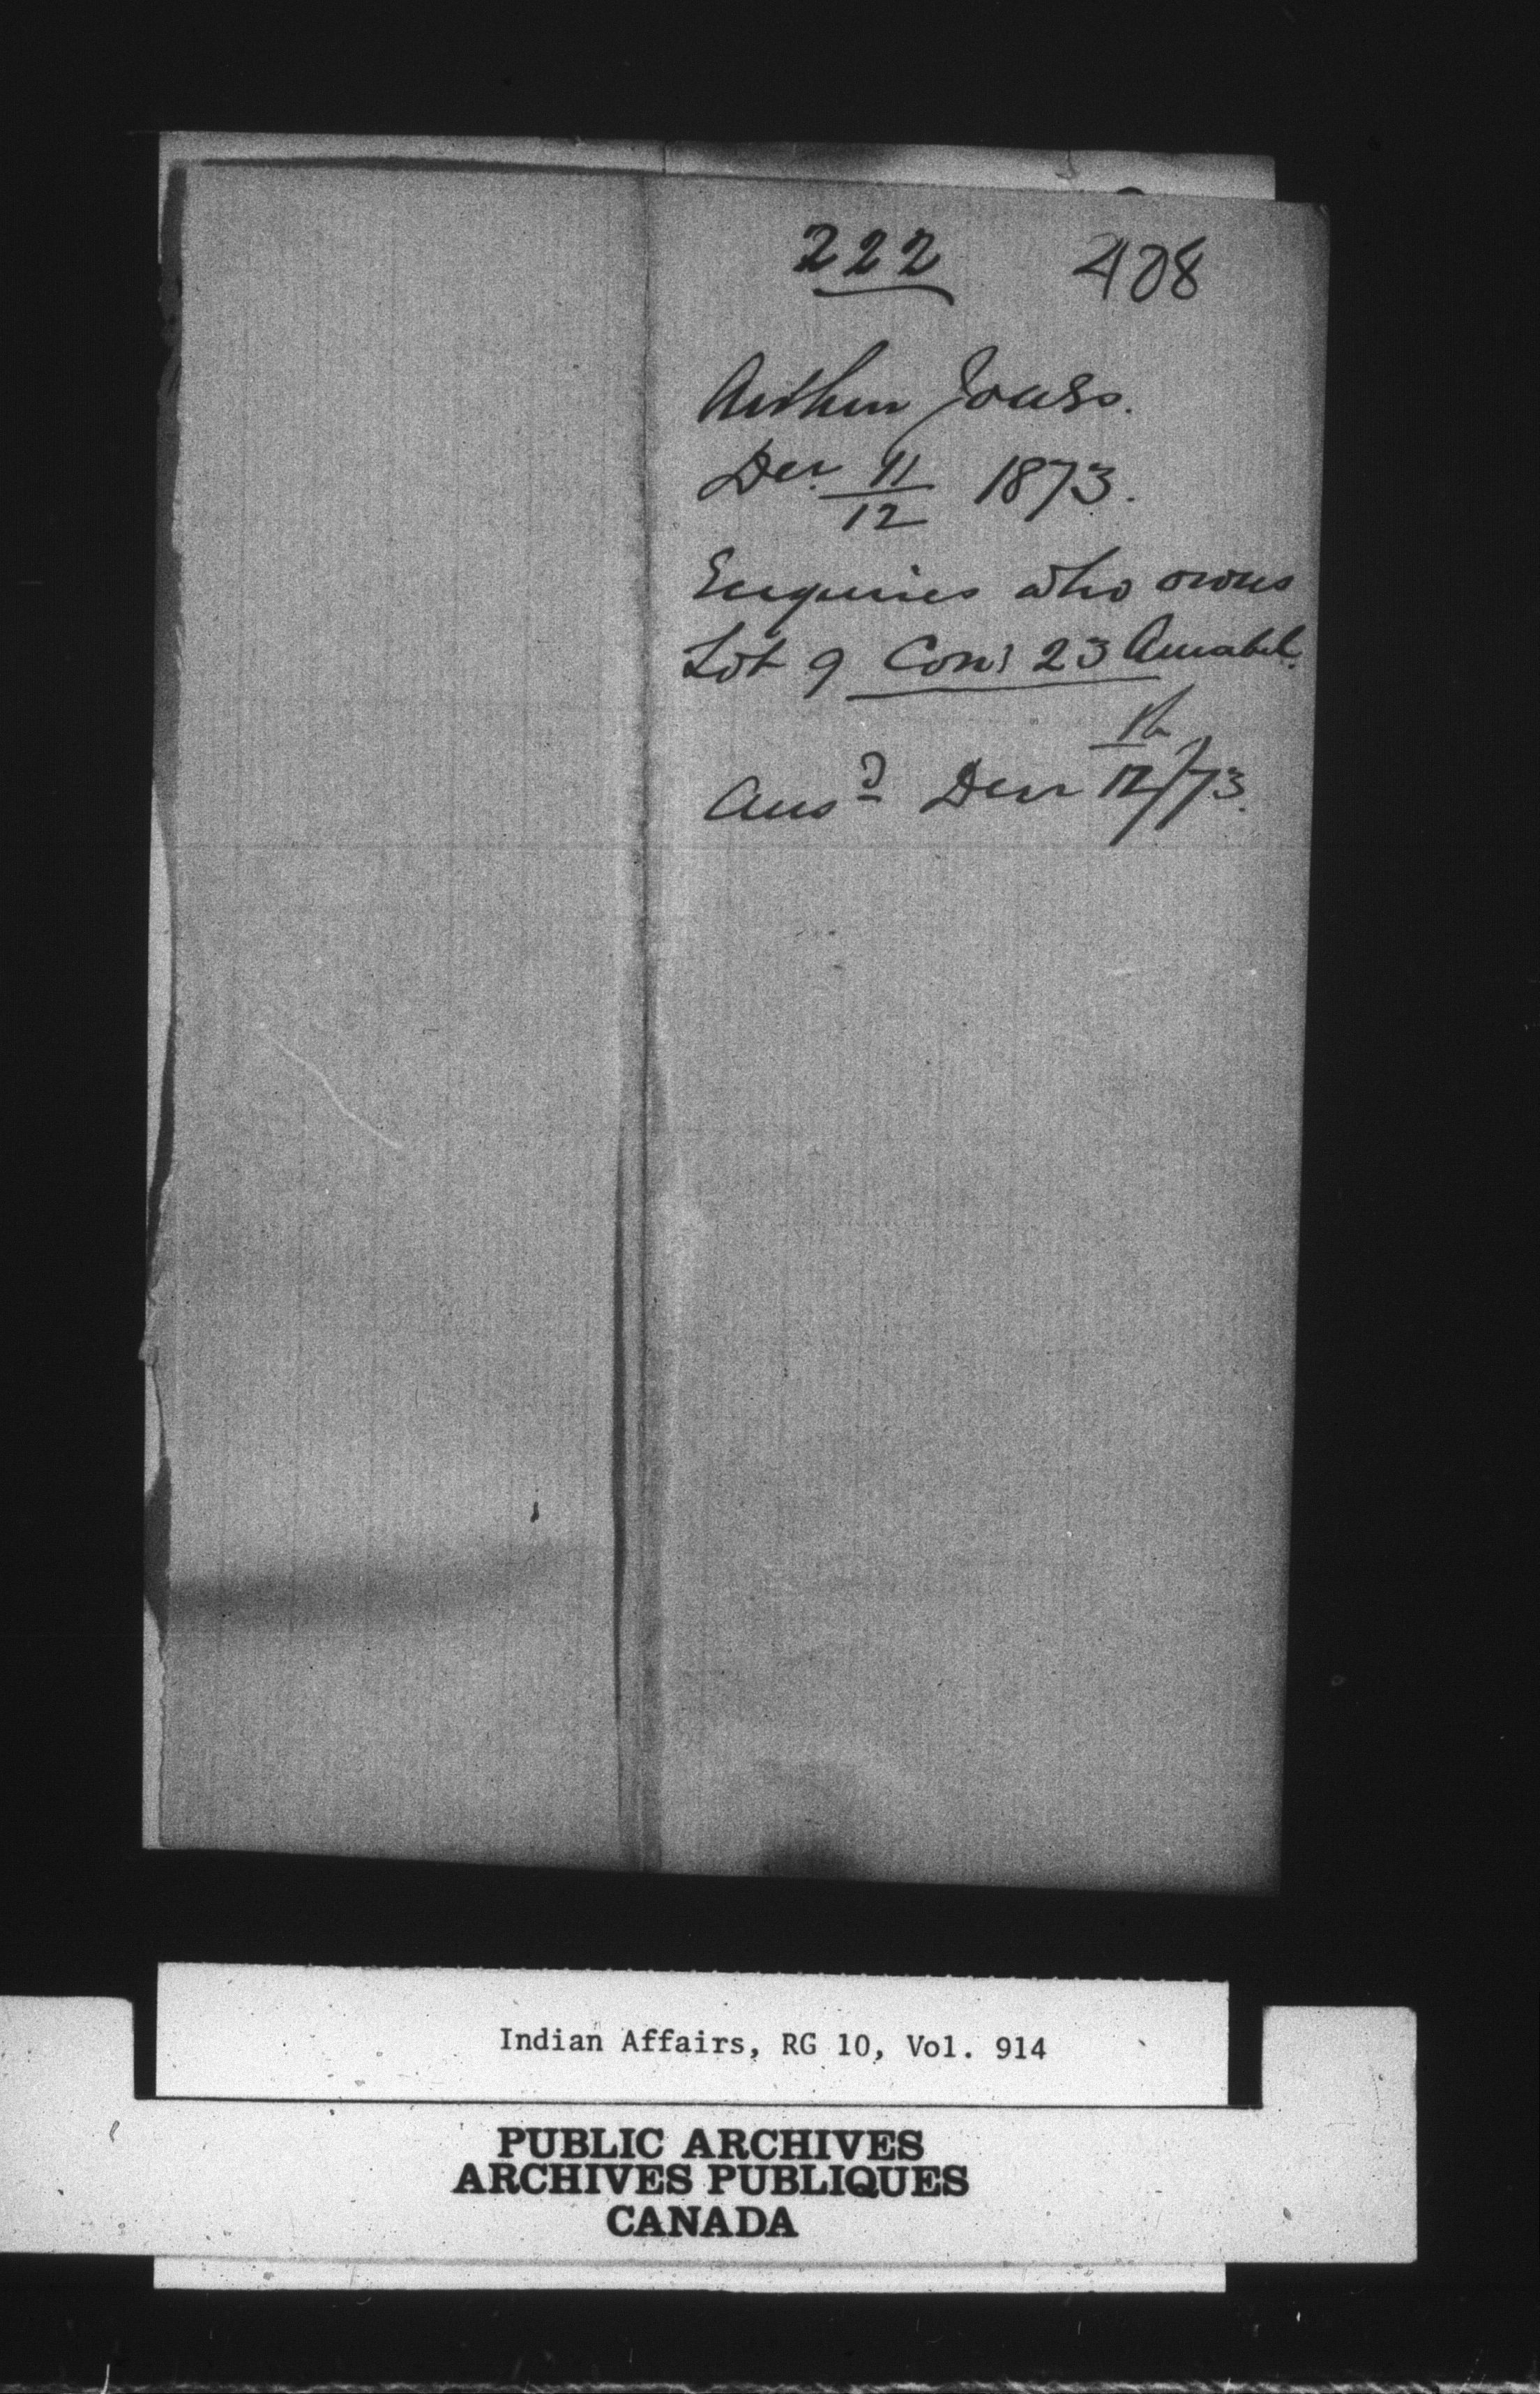 222 408
Arthur Joass.
Decr 11/12 1873.
Enquiries who owns
Lot 9 Con: 23 Amabel.
Ansd Decr 12/73.
Indian Affairs, RG 10, Vol. 914
PUBLIC ARCHIVES
ARCHIVES PUBLIQUES
CANADA